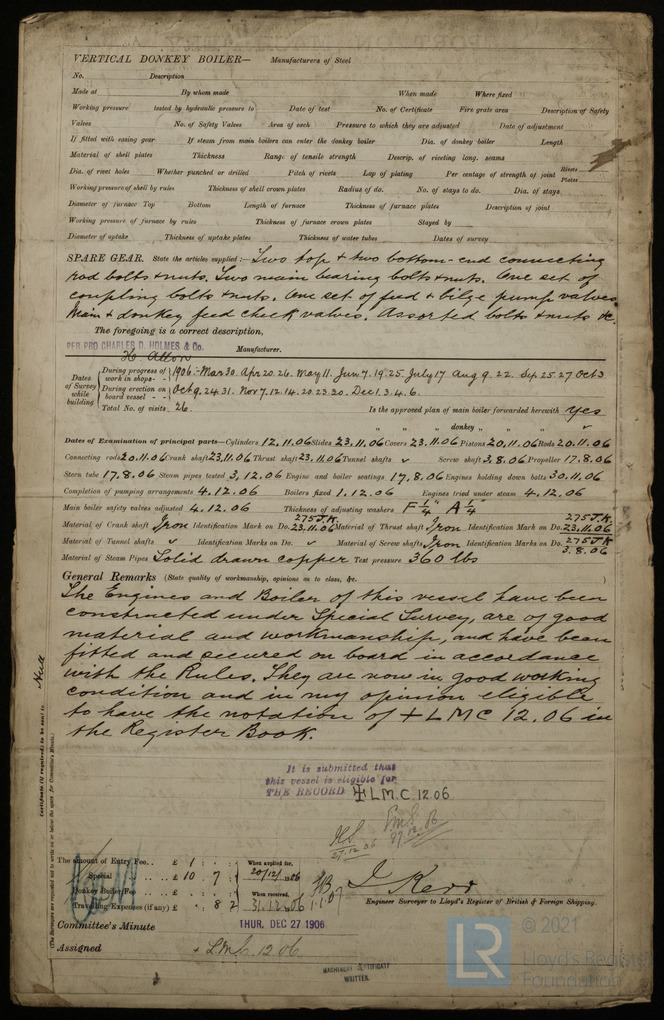 VERTICAL DONKEY BOILER— Manufacturers of Steel
No. Description
Made at By whom made When made Where fixed
Working pressure tested by hydraulic pressure to Date of test No. of Certificate Fire grate area Description of Safety
Valves No. of Safety Valves Area of each Pressure to which they are adjusted Date of adjustment
If fitted with easing gear If steam from main boilers can enter the donkey boiler Dia. of donkey boiler Length
Material of shell plates Thickness Range of tensile strength Descrip. of riveting long. seams
Dia. of rivet holes Whether punched or drilled Pitch of rivets Lap of plating Per centage of strength of joint Rivets Plates
Working pressure of shell by rules Thickness of shell crown plates Radius of do. No. of stays to do. Dia. of stays
Diameter of furnace Top Bottom Length of furnace Thickness of furnace plates Description of joint
Working pressure of furnace by rules Thickness of furnace crown plates Stayed by
Diameter of uptake Thickness of uptake plates Thickness of water tubes Dates of survey
SPARE GEAR. State the articles supplied:— Two top & two bottom-end connecting
rod bolts & nuts. Two main bearing bolts & nuts. One set of
coupling bolts & nuts. One set of feed & bilge pump valves
Main & donkey feed check valves. Assorted bolts & nuts &c.
The foregoing is a correct description,
PER PRO CHARLES D. HOLMES & Co. Manufacturer.
Dates of Survey while building
During progress of work in shops - - 1906:- Mar 30. Apr 20. 26. May 11. Jun 7. 19. 25. July 17 Aug 9. 22. Sep 25. 27 Oct 3
During erection on board vessel - - Oct 9. 24. 31. Nov 7. 12. 14. 20. 23. 30. Dec 1. 3. 4. 6.
Total No. of visits 26. Is the approved plan of main boiler forwarded herewith Yes
" " " donkey " " " "
Dates of Examination of principal parts—Cylinders 12.11.06 Slides 23.11.06 Covers 23.11.06 Pistons 20.11.06 Rods 20.11.06
Connecting rods 20.11.06 Crank shaft 23.11.06 Thrust shaft 23.11.06 Tunnel shafts " Screw shaft 3.8.06 Propeller 17.8.06
Stern tube 17.8.06 Steam pipes tested 3.12.06 Engine and boiler seatings 17.8.06 Engines holding down bolts 30.11.06
Completion of pumping arrangements 4.12.06 Boilers fixed 1.12.06 Engines tried under steam 4.12.06
Main boiler safety valves adjusted 4.12.06 Thickness of adjusting washers F 1/4" A 1/4"
Material of Crank shaft Iron Identification Mark on Do. 275 J.K. 23.11.06 Material of Thrust shaft Iron Identification Mark on Do. 275 J.K. 23.11.06
Material of Tunnel shafts " Identification Marks on Do. " Material of Screw shafts Iron Identification Marks on Do. 275 J.K 3.8.06
Material of Steam Pipes Solid drawn copper Test pressure 360 lbs
General Remarks (State quality of workmanship, opinions as to class, &c. )
The Engines and Boiler of this vessel have been
constructed under Special Survey, are of good
material and workmanship, and have been
fitted and secured on board in accordance
with the Rules. They are now in good working
condition and in my opinion eligible
to have the notation of + LMC 12.06 in
the Register Book.
Hull
Certificate (if required) to be sent to
(The Surveyors are requested not to write on or below the space for Committee's Minute.)
It is submitted that
this vessel is eligible for
THE RECORD + L.M.C. 12.06
27.12.06
The amount of Entry Fee . . £ 1 : : When applied for,
Special . . . . £ 10 : 7 : 20/12/1906
Donkey Boiler Fee . . . £ : : When received,
Travelling Expenses (if any) £ : 8 : 2 31.12.06 1.1.07
J. Kerr
Engineer Surveyor to Lloyd's Register of British & Foreign Shipping.
Committee's Minute THUR. DEC 27 1906
Assigned + L.M.C. 12.06
MACHINERY CERTIFICATE
WRITTEN.
© 2021
LR
Lloyd's Register
Foundation